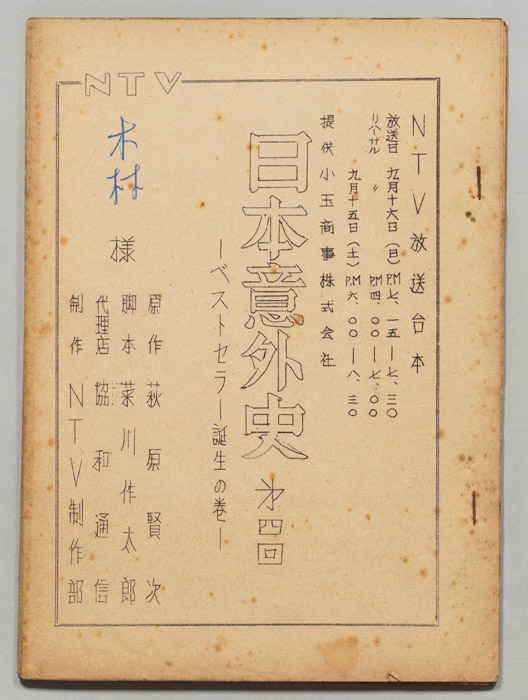 NTV
NTV放送台本
放送日 九月十六日(日)P.M七、一五―七、三〇
リハーサル 〃 P.M四、〇〇―七、〇〇
九月十五日(土)P.M六、〇〇―八、三〇
提供 小玉商事株式会社
日本意外史 才四回
―ベストセラー誕生の巻―
原作 萩原賢次
脚本 菜川作太郎
代理店 協和通信
制作 NTV制作部
木村様